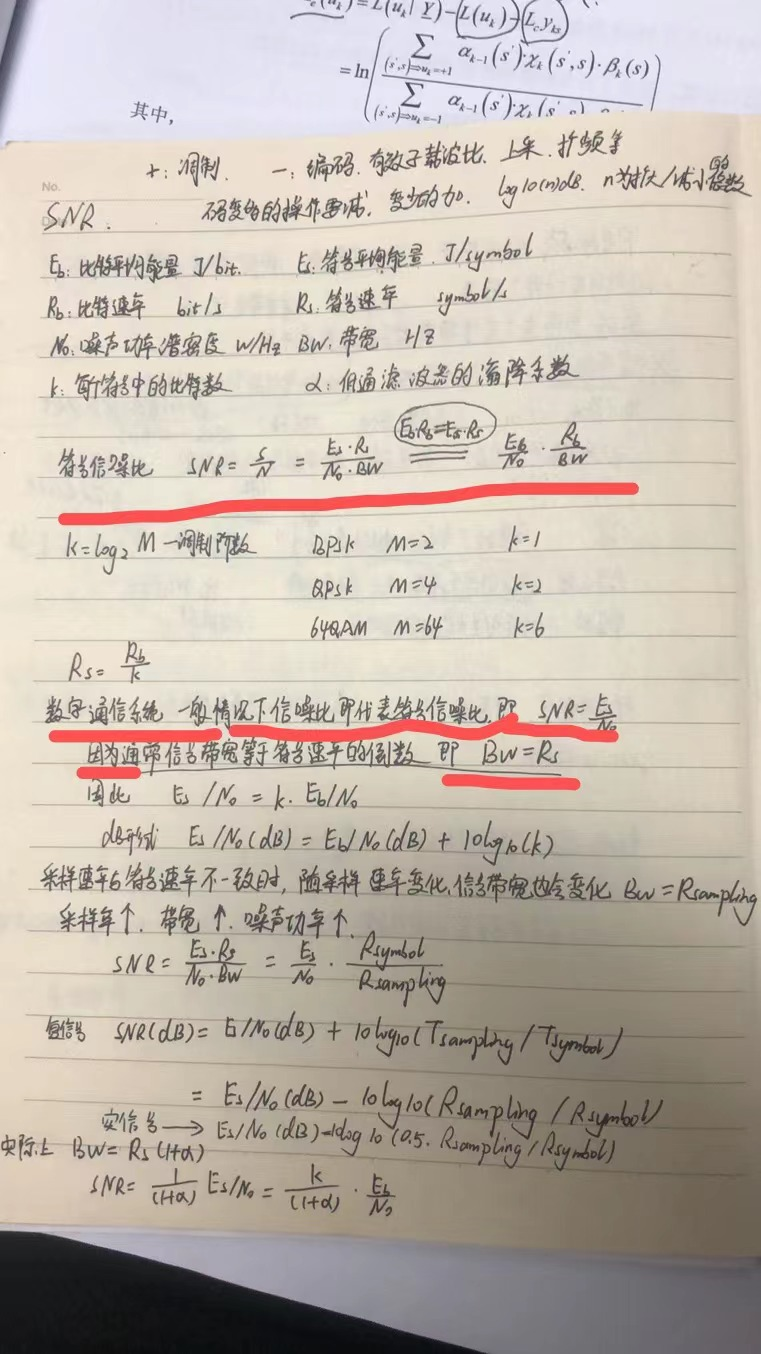 (u_k) = L(u_k | Y) − L(u_k) − L_c y_ks
= ln( Σ_{(s',s)⇒u_k=+1} α_{k-1}(s')·χ_k(s',s)·β_k(s)
Σ_{(s',s)⇒u_k=-1} α_{k-1}(s')·χ_k(s',s)
其中,
+: 调制. −: 编码. 有效子载波比. 上采. 扩频等
No.
SNR. 码变多的操作要减, 变少的加. log10(n)dB. n为扩大/减小的倍数
Eb: 比特平均能量 J/bit. Es: 符号平均能量. J/symbol
Rb: 比特速率 bit/s Rs: 符号速率 symbol/s
No: 噪声功率谱密度 W/Hz BW: 带宽 HZ
k: 每个符号中的比特数 α: 低通滤波器的滚降系数
符号信噪比 SNR = S/N = Es·Rs/No·BW Eb·Rb=Es·Rs Eb/No · Rb/BW
k=log₂ M — 调制阶数 BPSK M=2 k=1
QPSK M=4 k=2
64QAM M=64 k=6
Rs = Rb/k
数字通信系统 一般情况下信噪比即代表符号信噪比, 即 SNR=Es/No
因为通带信号带宽等于符号速率的倒数 即 BW=Rs
因此 Es/No = k. Eb/No
dB形式 Es/No(dB) = Eb/No(dB) + 10log10(k)
采样速率与符号速率不一致时, 随采样速率变化, 信号带宽也会变化 BW=Rsampling
采样率↑. 带宽↑. 噪声功率↑.
SNR = Es·Rs/No·BW = Es/No · Rsymbol/Rsampling
复信号 SNR(dB) = Es/No(dB) + 10log10(Tsampling/Tsymbol)
= Es/No(dB) − 10log10(Rsampling/Rsymbol)
实信号 → Es/No(dB)−10log10(0.5·Rsampling/Rsymbol)
实际上 BW=Rs(1+α)
SNR= 1/(1+α) Es/No = k/(1+α) · Eb/No